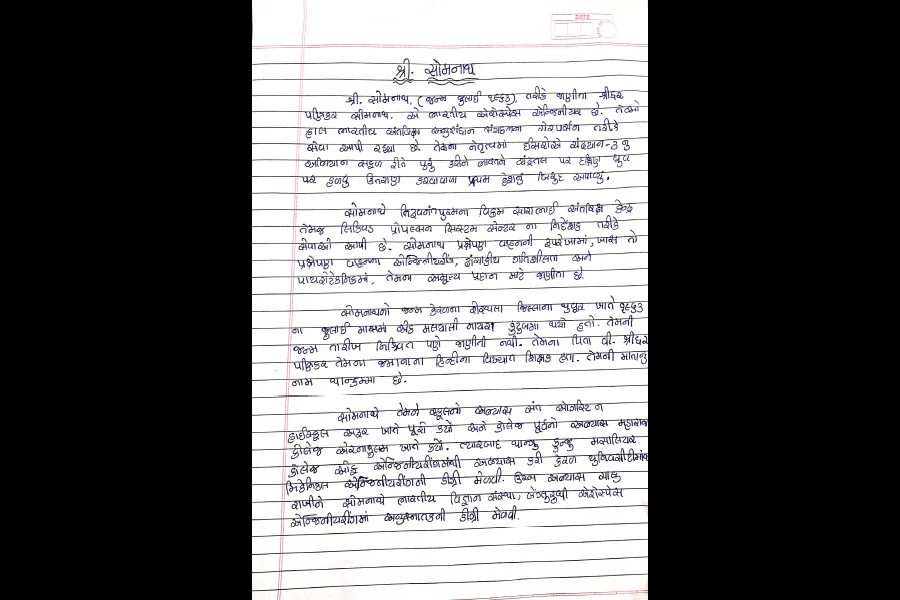 DATE
શ્રી. સોમનાથ
શ્રી. સોમનાથ, (જન્મ જુલાઈ ૧૯૬૩), તરીકે જાણીતા શ્રીધર
પણિકર સોમનાથ. એ ભારતીય એરોસ્પેસ એન્જિનીયર છે. તેઓ
હાલ ભારતીય અંતરિક્ષ અનુસંધાન સંગઠનના ચેરપર્સન તરીકે
સેવા આપી રહ્યા છે. તેમના નેતૃત્વમાં ઈસરોએ ચંદ્રયાન-૩ નુ
અભિયાન સફળ રીતે પુર્ણ કરીને ભારતને ચંદ્રતલ પર દક્ષિણ ધ્રુવ
પર હળવું ઉતરાણ કરવાવાળા પ્રથમ દેશનું બિરુદ અપાવ્યું.
સોમનાથે તિરુવનંતપુરમના વિક્રમ સારાભાઈ અંતરિક્ષ કેન્દ્ર
તેમજ લિક્વિડ પ્રોપલ્સન સિસ્ટમ સેન્ટર ના નિર્દેશક તરીકે
સેવાઓ આપી છે. સોમનાથ પ્રક્ષેપણ વાહનની રૂપરેખામાં, ખાસ તો
પ્રક્ષેપણ વાહનના એન્જિનીયરીંગ, ઢાંચાકીય ગતિશીલતા અને
પાયરોટેકનિકમાં, તેમના અમૂલ્ય પ્રદાન માટે જાણીતા છે.
સોમનાથનો જન્મ કેરળના જિલ્લાના થુરુર ખાતે ૧૯૬૩
ના જુલાઈ માસમાં એક મલયાલી નાયર કુટુંબમાં થયો હતો. તેમની
જન્મ તારીખ નિશ્ચિત પણે જાણીતી નથી. તેમના પિતા વી. શ્રીધર
પણિકર તેમના જમાનાના હિન્દીના વિખ્યાત શિક્ષક હતા. તેમની માતાનુ
નામ થાન્કમ્મા છે.
સોમનાથે તેમને સ્કૂલનો અભ્યાસ સંત ઓગસ્ટિન
હાઈસ્કૂલ અરૂર ખાતે પૂરો કર્યો અને કોલેજ પૂર્વનો અભ્યાસ મહારાજા
કોલેજ એરનાકુલમ ખાતે કર્યો. ત્યારબાદ થાન્ગલ કુન્જુ મસાલિયાર
કોલેજ ઓફ એન્જિનીયરીંગમાંથી અભ્યાસ કરી કેરળ યુનિવર્સીટીમાંથ
મિકેનિકલ એન્જિનીયરીંગની ડીગ્રી મેળવી. ઉચ્ચ અભ્યાસ ચાલુ
રાખીને સોમનાથે ભારતીય વિજ્ઞાન સંસ્થા, બેંગ્લુરુથી એરોસ્પેસ
એન્જિનીયરીંગમાં અનુસ્નાતકની ડીગ્રી મેળવી.